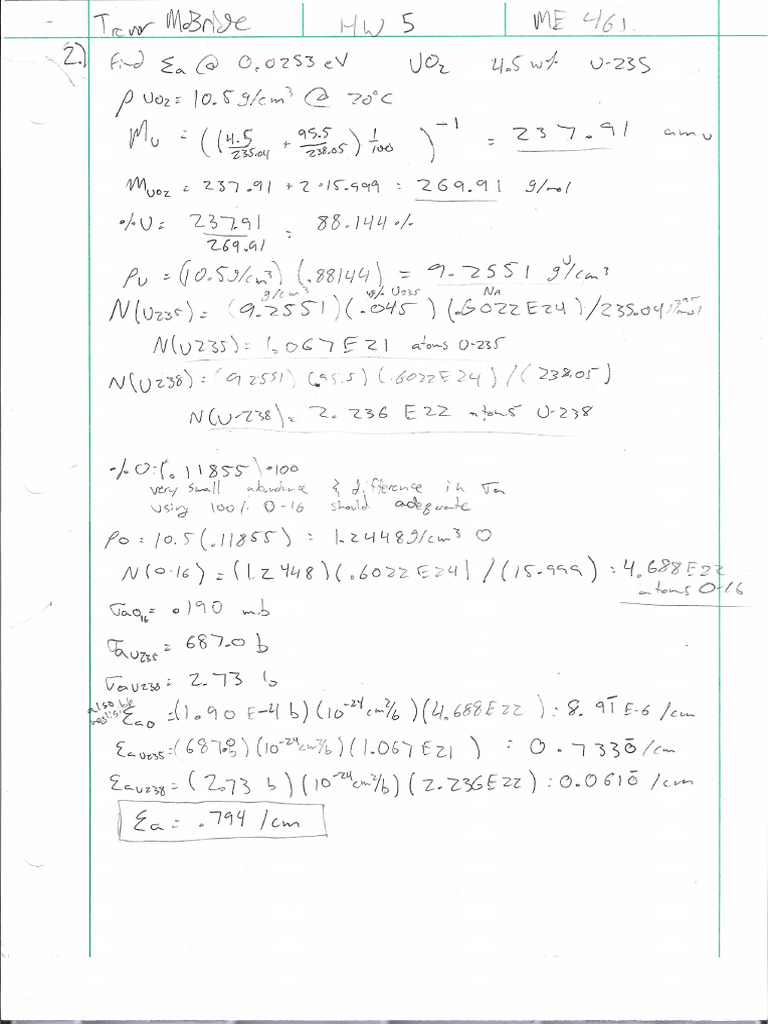 Trevor McBride HW 5 ME 461
2.) Find Σa @ 0.0253 eV UO2 4.5 w% U-235
ρ UO2 = 10.5 g/cm³ @ 20°C
MU = ((4.5/235.04 + 95.5/238.05) 1/100)^-1 = 237.91 amu
MUO2 = 237.91 + 2·15.999 = 269.91 g/mol
%U = 237.91/269.91 = 88.144 %
ρU = (10.5 g/cm³)(.88144) = 9.2551 gU/cm³
g/cm³ w% U235 NA
N(U235) = (9.2551)(.045)(.6022E24)/235.04
N(U235) = 1.067E21 atoms U-235
N(U238) = (9.2551)(.95.5)(.6022E24)/(238.05)
N(U-238) = 2.236 E22 atoms U-238
% O: (.11855)·100
very small abundance & difference in σa
using 100% O-16 should adequate
ρO = 10.5(.11855) = 1.2448 g/cm³ O
N(O-16) = (1.2448)(.6022E24)/(15.999) = 4.688E22
atoms O-16
σaO16 = .190 mb
σaU235 = 687.0 b
σaU238 = 2.73 b
also
ΣaO = (1.90 E-4 b)(10^-24 cm²/b)(4.688E22) = 8.91 E-6 /cm
ΣaU235 = (687.0 b)(10^-24 cm²/b)(1.067E21) = 0.7330/cm
ΣaU238 = (2.73 b)(10^-24 cm²/b)(2.236E22) = 0.0610 /cm
Σa = .794 /cm